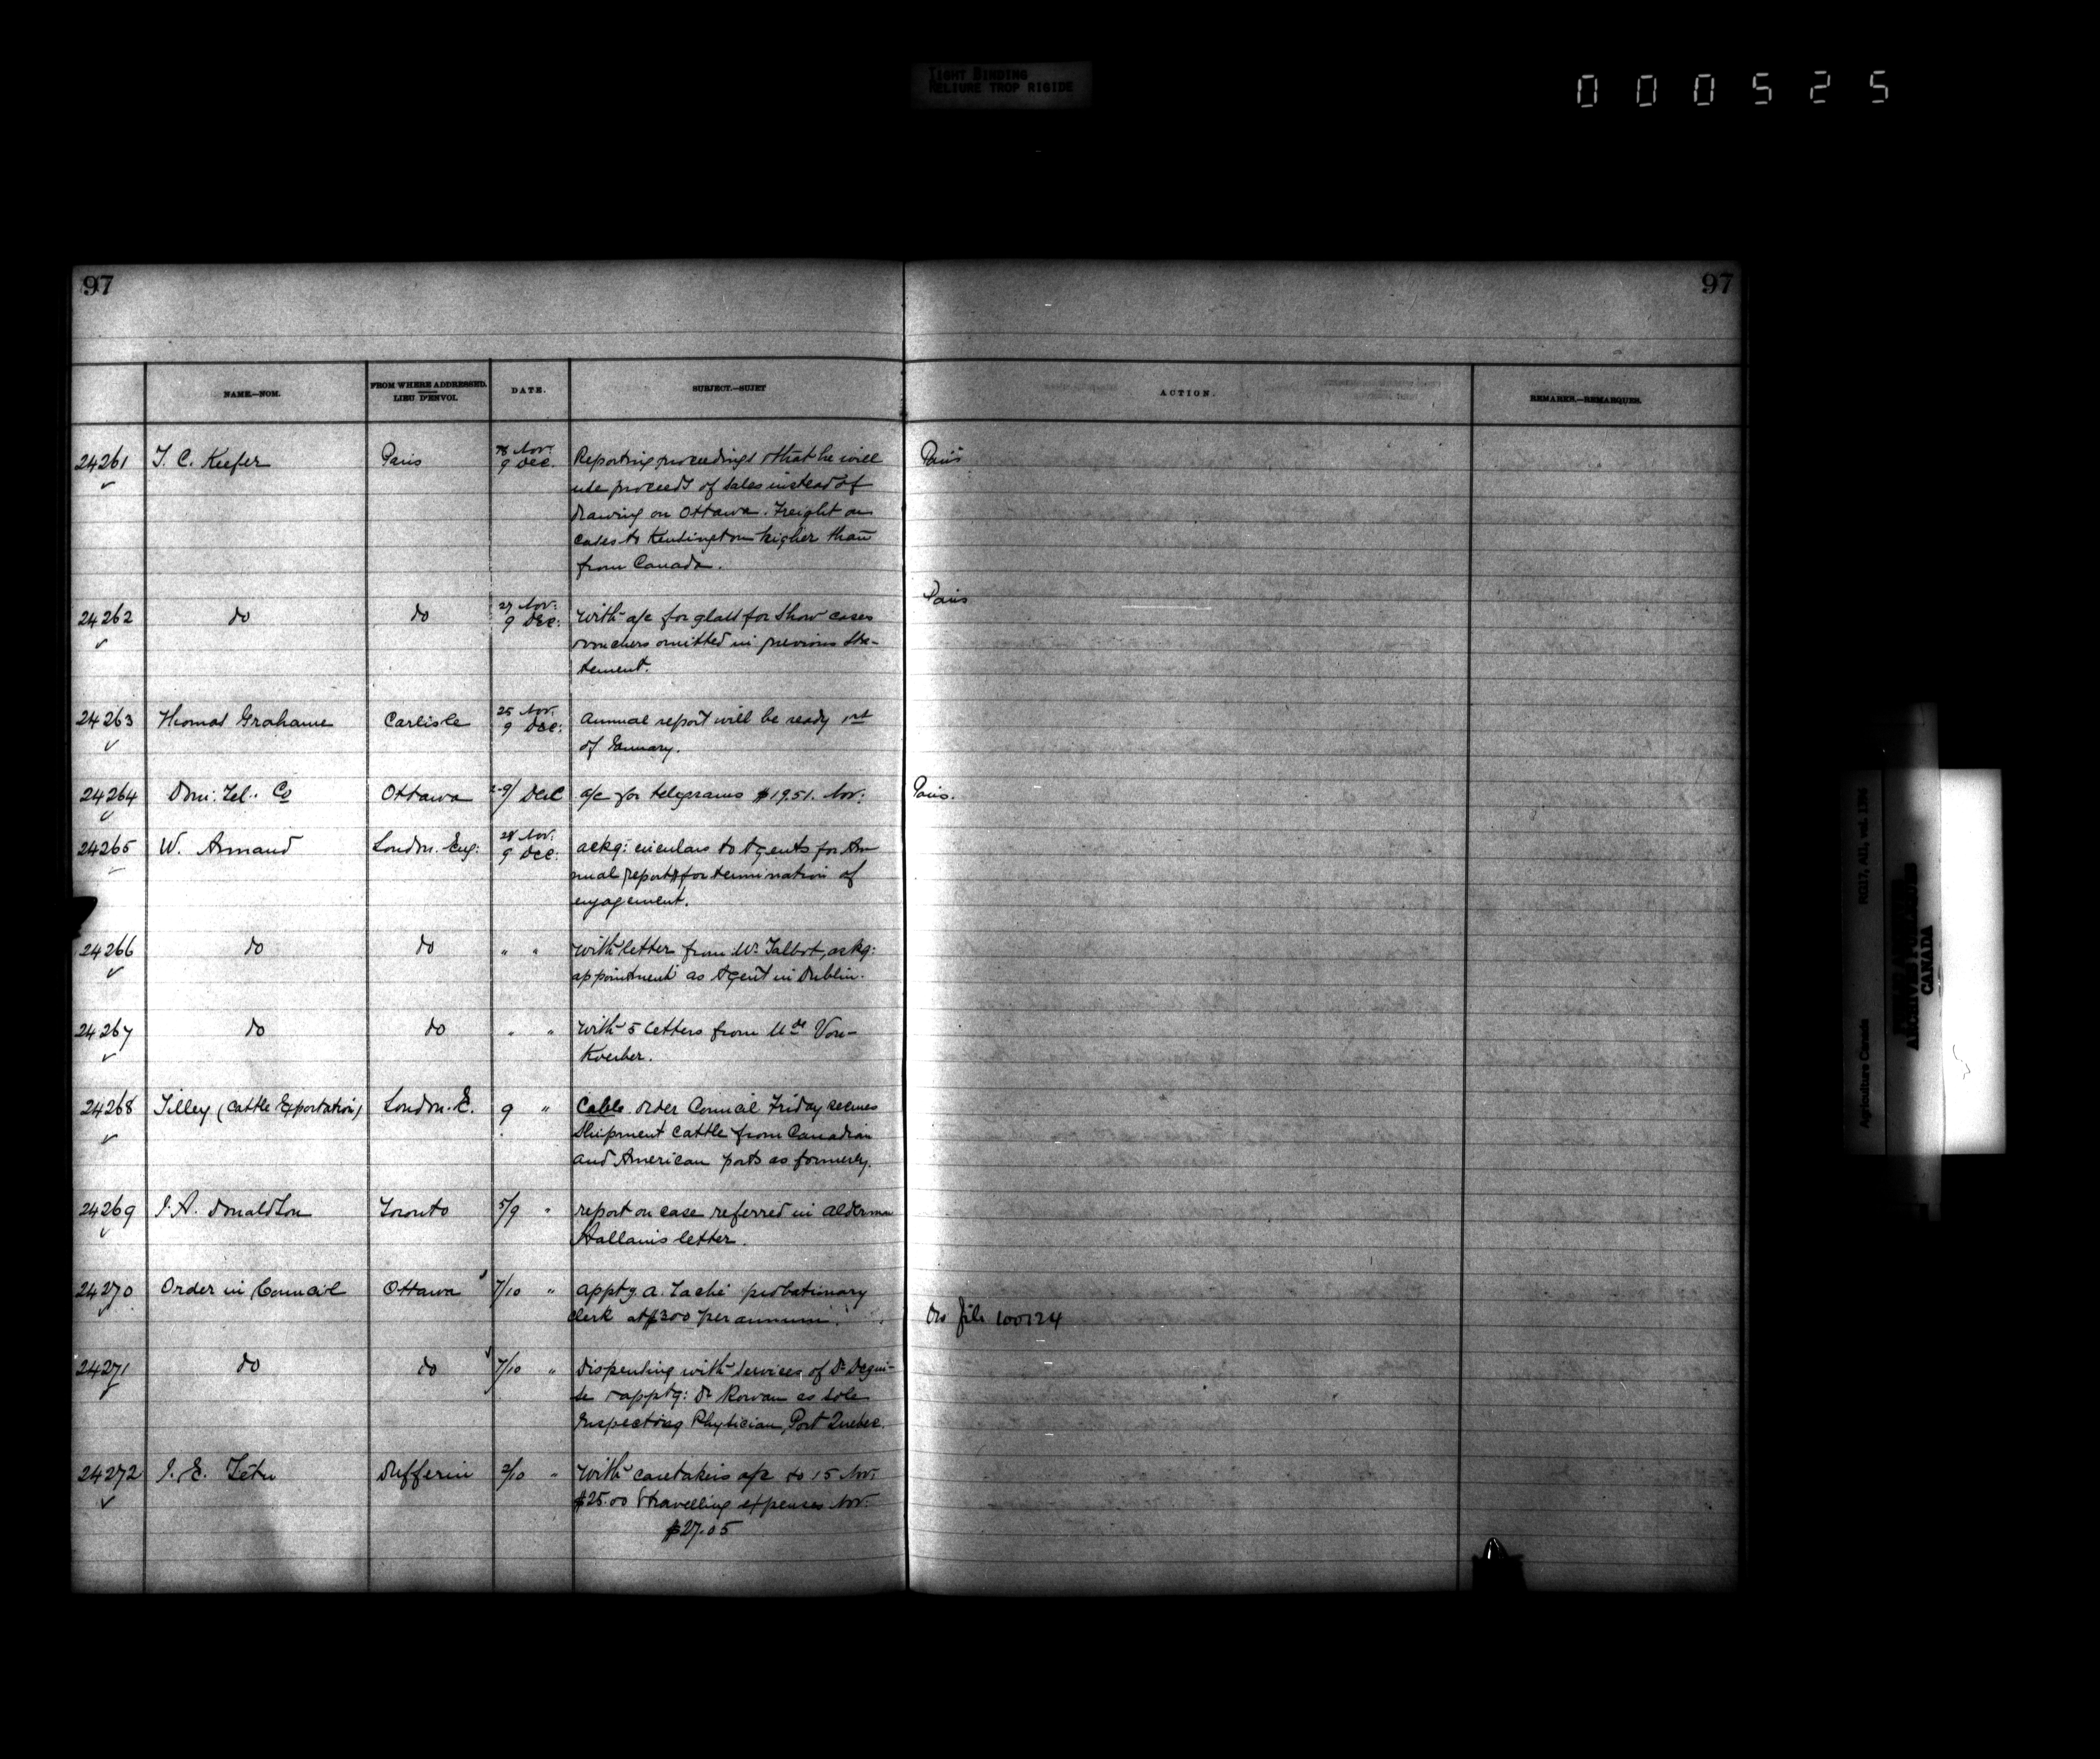 TIGHT BINDING
RELIURE TROP RIGIDE
000525
97
97
NAME.—NOM.
FROM WHERE ADDRESSED.
LIEU D'ENVOI.
DATE.
SUBJECT.—SUJET
ACTION.
REMARKS.—REMARQUES.
24261 T. C. Keefer Paris Nov. 9 Dec. Reporting proceedings & that he will Paris
use proceeds of sales instead of
drawing on Ottawa. Freight on
cases to Kensington higher than
from Canada.
24262 do do 27 Nov: 9 Dec: With a/c for glass for show cases Paris
& vouchers omitted in previous sta-
tement.
24263 Thomas Grahame Carlisle 25 Nov. 9 Dec: Annual report will be ready 1st
of January.
24264 Dom: Tel: Co Ottawa 2-9/ Dec a/c for telegrams $19.51. Nov: Paris.
24265 W. Annand London. Eng: 28 Nov. 9 Dec: ackg: circulars to Agents for An
nual reports & for termination of
engagement.
24266 do do " " With letter from Mr Talbot, ackg:
appointment as Agent in Dublin.
24267 do do " " With 5 letters from Von-
Koerber.
24268 Tilley (Cattle Exportation) London. E. 9 " Cable. Order Council Friday
Shipment cattle from Canadian
and American ports as formerly.
24269 J. A. Donaldson Toronto 5/9 " report on case referred in Alderman
Hallam's letter.
24270 Order in Council Ottawa 7/10 " apptg A. Taché probationary
clerk at $300 per annum. On file 100124
24271 do do 7/10 " Dispensing with services of Dr Degui-
se & apptg: Dr Rowan as sole
Inspecting Physician, Port Quebec.
24272 J. E. Tétu Dufferin 2/10 " With caretakers a/c to 15 Nov:
$25.00 & travelling expenses Nov:
$27.05
RG17, AII, vol. 1396
Agriculture Canada
CANADA